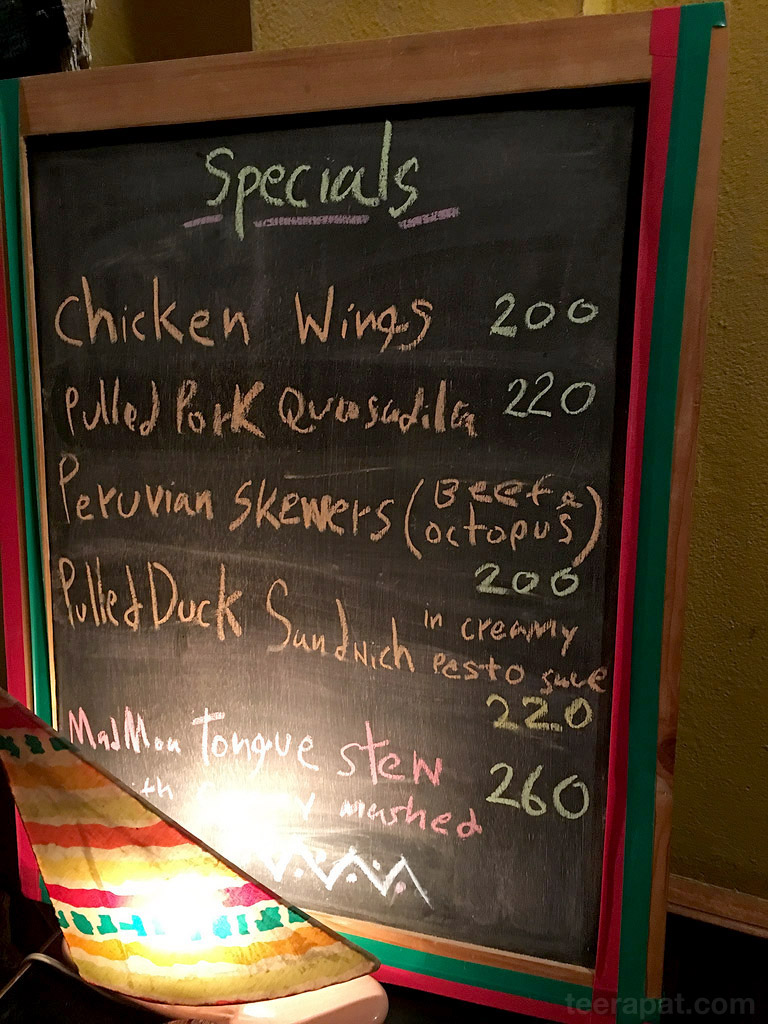 Specials
Chicken Wings 200
Pulled Pork Quasadilla 220
Peruvian Skewers (Beef &
octopus)
200
Pulled Duck Sandwich in creamy
Pesto suce
220
MadMoa Tongue stew
260
mashed
teerapat.com